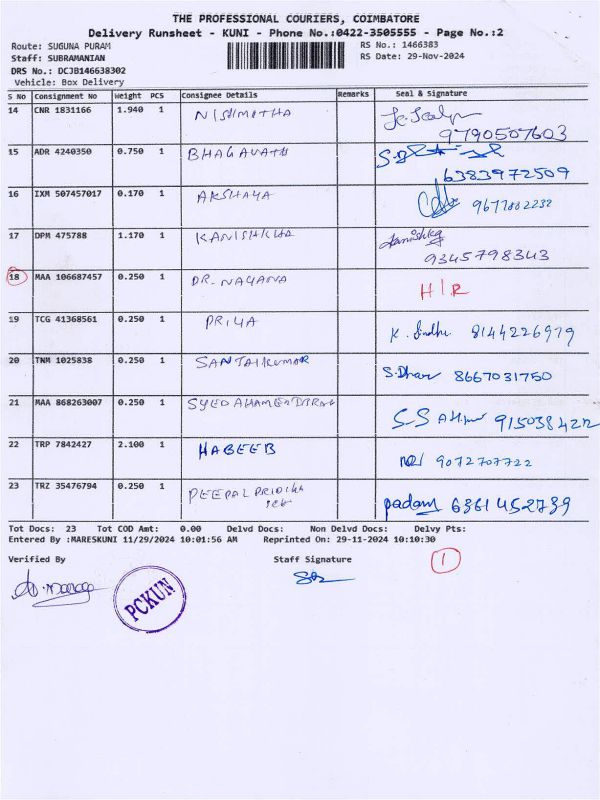 THE PROFESSIONAL COURIERS, COIMBATORE
Delivery Runsheet - KUNI - Phone No.:0422-3505555 - Page No.:2
Route: SUGUNA PURAM RS No.: 1466383
Staff: SUBRAMANIAN RS Date: 29-Nov-2024
DRS No.: DCJB146638302
Vehicle: Box Delivery
S No Consignment No Weight PCS Consignee Details Remarks Seal & Signature
14 CNR 1831166 1.940 1 NISHMITHA
9790507603
15 ADR 4240350 0.750 1 BHAGAVATH
6383972509
16 IXM 507457017 0.170 1 AKSHAYA
17 DPM 475788 1.170 1 KANISHKHA
9345798343
18 MAA 106687457 0.250 1 DR. NAYANA H/R
19 TCG 41368561 0.250 1 PRIYA K. Sindhu 8144226979
20 TNM 1025838 0.250 1 S.Dhar 8667031750
21 MAA 868263007 0.250 1
22 TRP 7842427 2.100 1 HABEEB 9072707722
23 TRZ 35476794 0.250 1 padam 6361452739
Tot Docs: 23 Tot COD Amt: 0.00 Delvd Docs: Non Delvd Docs: Delvy Pts:
Entered By :MARESKUNI 11/29/2024 10:01:56 AM Reprinted On: 29-11-2024 10:10:30
Verified By Staff Signature 1
PCKUN